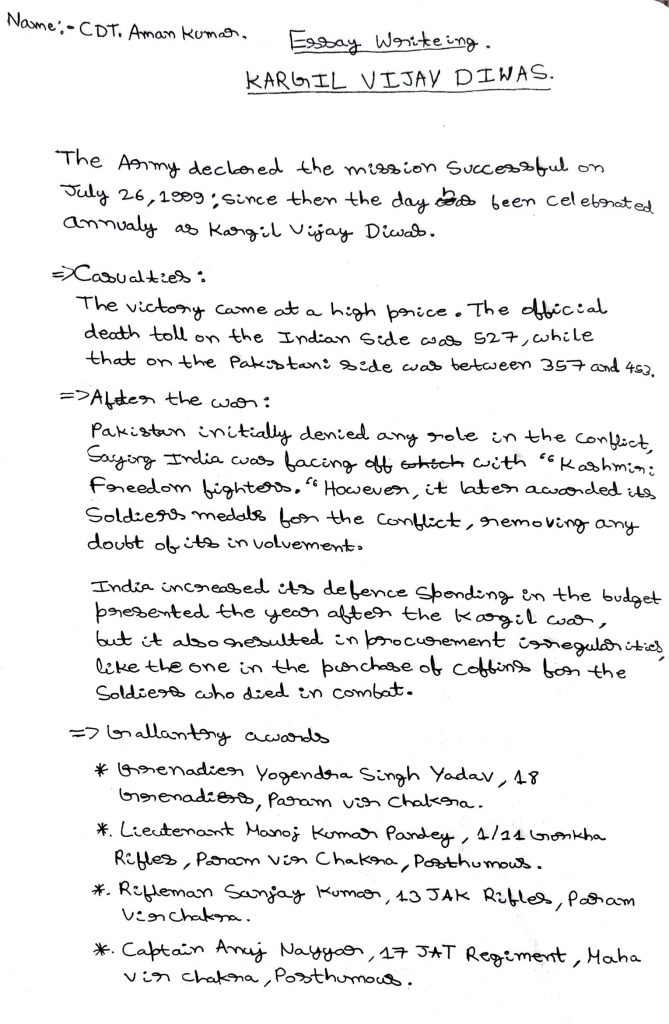 Name:- CDT. Aman Kumar.
Essay Writeing.
KARGIL VIJAY DIWAS.
The Army declared the mission Successful on
July 26, 1999; Since then the day has been celebrated
annualy as Kargil Vijay Diwas.
=> Casualties :
The victory came at a high price. The official
death toll on the Indian Side was 527, while
that on the Pakistani side was between 357 and 453.
=> After the war :
Pakistan initially denied any role in the conflict,
Saying India was facing off which with "Kashmiri
Freedom fighters." However, it later awarded its
Soldiers medals for the Conflict, removing any
doubt of its involvement.
India increased its defence Spending in the budget
presented the year after the Kargil war,
but it also resulted in procurement irregularities,
like the one in the purchase of coffins for the
Soldiers who died in combat.
=> Gallantry awards
* Grenadier Yogendra Singh Yadav, 18
Grenadiers, Param vir Chakra.
*. Lieutenant Manoj Kumar Pandey, 1/11 Gorkha
Rifles, Param Vir Chakra, Posthumous.
*. Rifleman Sanjay Kumar, 13 JAK Rifles, Param
Vir Chakra.
*. Captain Anuj Nayyar, 17 JAT Regiment, Maha
vir chakra, Posthumous.